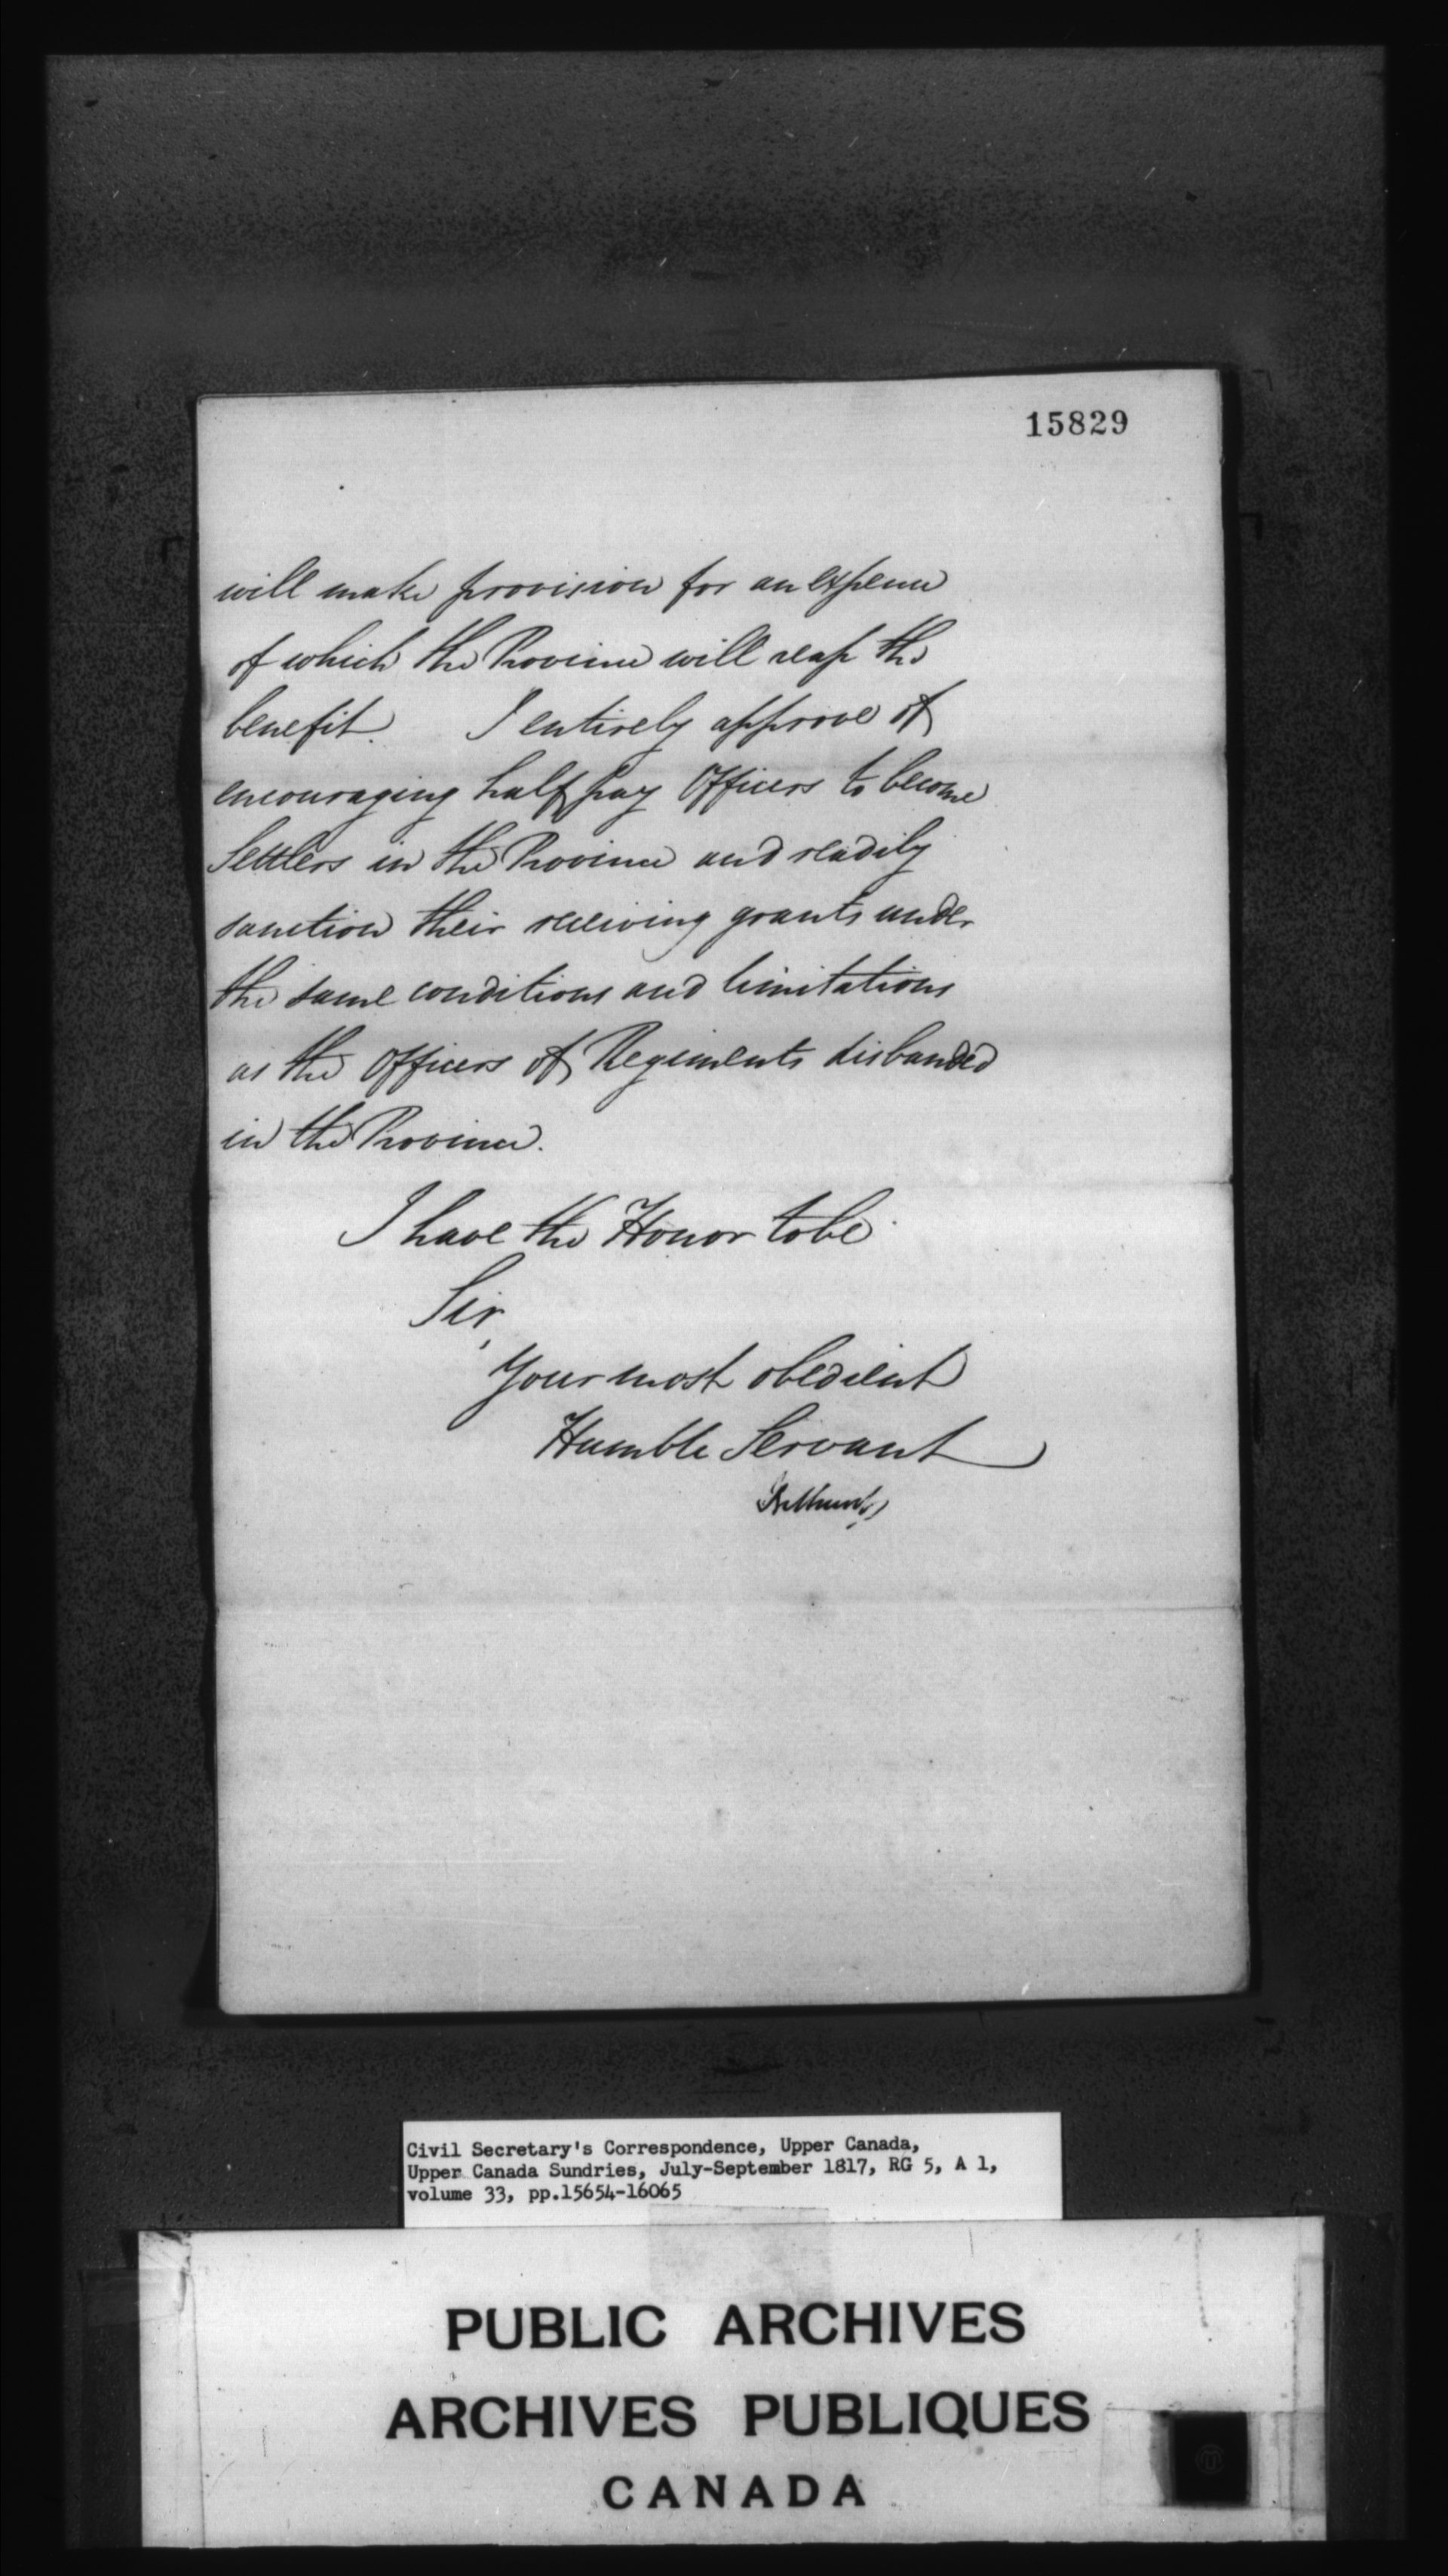 15829
will make provision for an expence
of which the Province will reap the
benefit. I entirely approve of
encouraging half pay Officers to become
Settlers in the Province and readily
sanction their receiving grants under
the same conditions and limitations
as the Officers of Regiments disbanded
in the Province.
I have the Honor to be
Sir,
Your most obedient
Humble Servant
Bathurst
Civil Secretary's Correspondence, Upper Canada,
Upper Canada Sundries, July-September 1817, RG 5, A 1,
volume 33, pp.15654-16065
PUBLIC ARCHIVES
ARCHIVES PUBLIQUES
CANADA